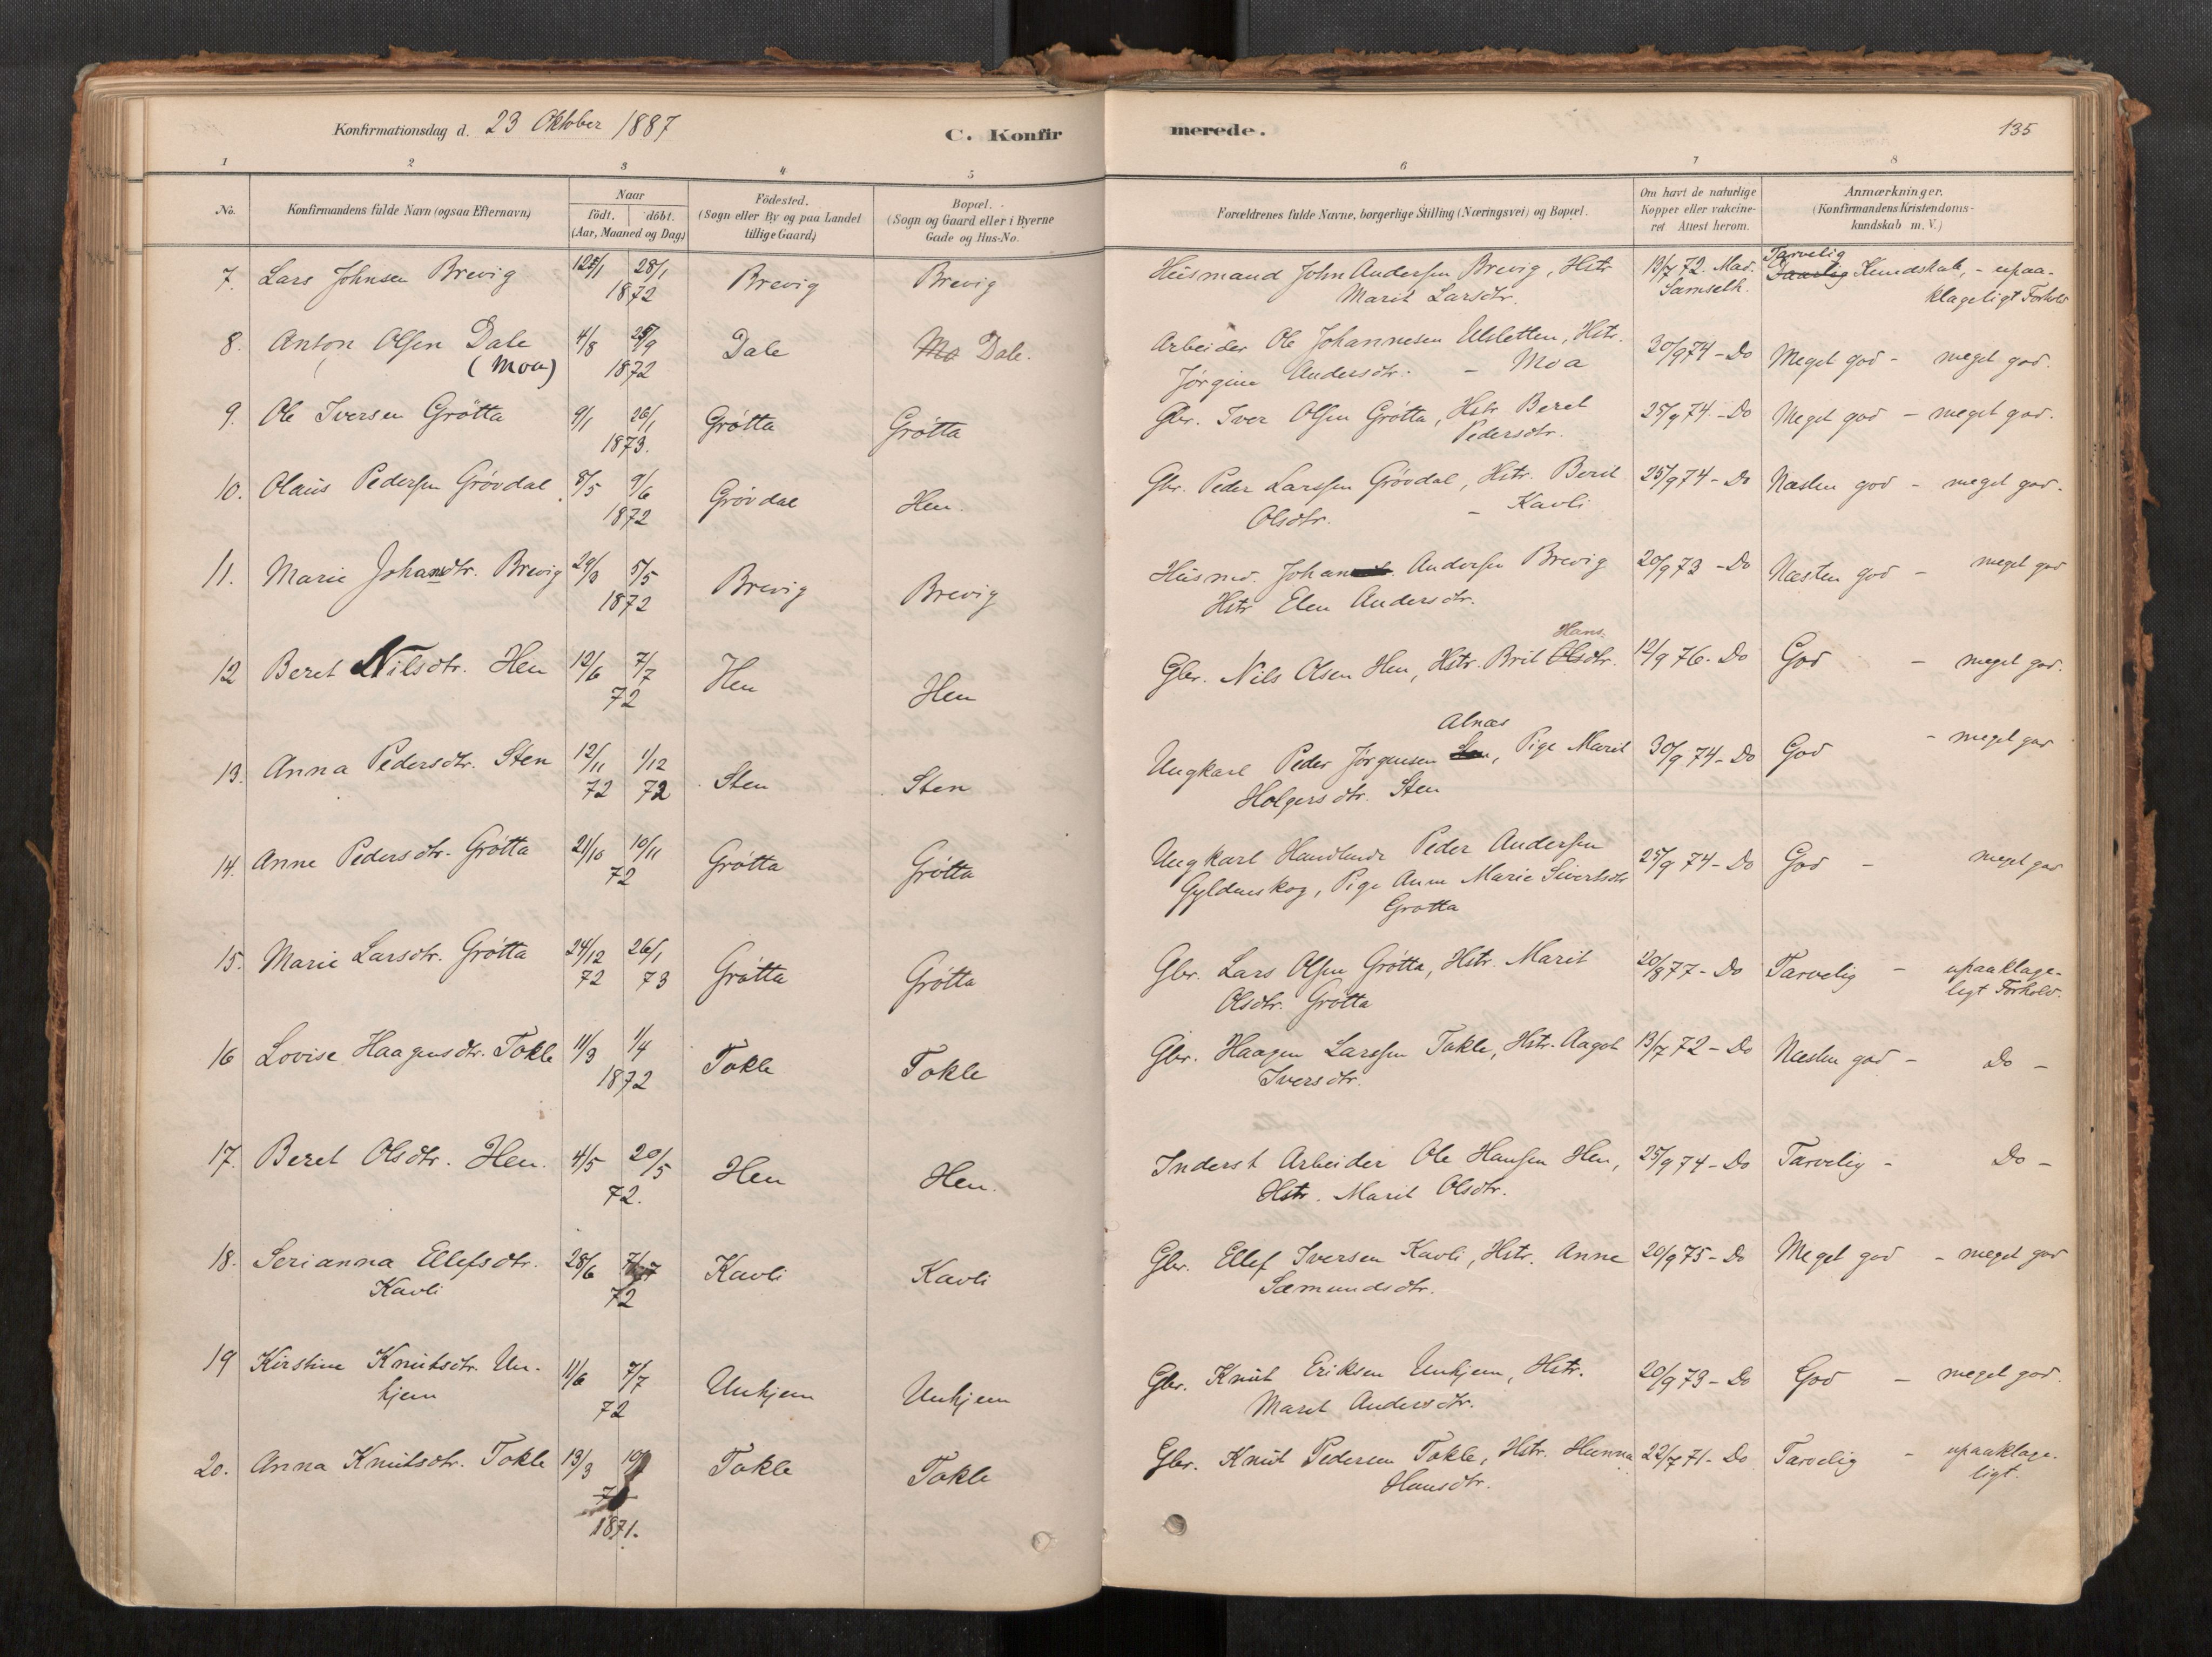 Konfirmationsdag d. 23 Oktober 1887
C. Konfirmerede.
135
1 2 3 4 5 6 7 8
No.
Konfirmandens fulde Navn (ogsaa Efternavn)
Naar
födt. döbt.
(Aar, Maaned og Dag)
Födested.
(Sogn eller By og paa Landet
tillige Gaard)
Bopæl.
(Sogn og Gaard eller i Byerne
Gade og Hus-No.
Forældrenes fulde Navne, borgerlige Stilling (Næringsvei) og Bopæl.
Om havt de naturlige
Kopper eller vakcine-
ret Attest herom.
Anmærkninger.
(Konfirmandens Kristendoms-
kundskab m. V.)
7. Lars Johnsen Brevig 28/1 Brevig Brevig Husmand John Andersen Brevig, Hstr 13/7 72. Mad. Tarvelig Daarlig Kundskab, - upaa-
1872 Marit Larsdtr. Samselh. klageligt Forhold
8. Anton Olsen Dale 4/8 25/9 Dale Mo Dale. Arbeider Ole Johannesen Ulsletten, Hstr. 30/9 74 - Do Meget god - meget god.
(Moa) 1872 Jørgine Andersdtr. - Moa
9. Ole Iversen Grötta 9/1 26/1 Grötta Grötta Gbr. Iver Olsen Grötta, Hstr. Beret 25/9 74. - Do Meget god - meget god.
1873. Pedersdtr.
10. Olaus Pedersen Grövdal 8/5 9/6 Grövdal Hen. Gbr. Peder Larssen Grövdal, Hstr. Berit 25/9 74 - Do Næsten god - meget god.
1872 Olsdtr. - Kavli
11. Marie Johansdtr. Brevig 29/3 5/5 Brevig Brevig Husmd. Johan Andersen Brevig 20/9 73 - Do Næsten god - meget god
1872 Hstr Elen Andersdtr.
12 Beret Nilsdtr. Hen 12/6 7/7 Hen Hen Gbr. Nils Olsen Hen, Hstr. Brit Olsdtr. Hans. 12/9 76. Do God - meget god.
72
13. Anna Pedersdtr. Sten 12/11 1/12 Sten Sten Ungkarl Peder Jørgensen Sten, Alnæs Pige Marit 30/9 74 - Do God - meget god
72 72 Holgersdtr. Sten
14. Anne Pedersdtr. Grötta 21/10 10/11 Grötta Grötta Ungkarl Handlende Peder Andersen 25/9 74 - Do God - meget god
72 Gyldenskog, Pige Anne Marie Sivertsdtr
Grøtta
15. Marie Larsdtr. Grötta 24/12 26/1 Grötta Grötta Gbr. Lars Olsen Grötta, Hstr. Marit 20/8 77 - Do Tarvelig - upaaklage-
72 73 Olsdtr. Grötta ligt Forhold.
16 Lovise Haagensdtr. Tokle 11/3 1/4 Tokle Tokle Gbr. Haagen Larssen Tokle, Hstr. Aagot 13/7 72 - Do Næsten god - Do -
1872 Iversdtr.
17. Beret Olsdtr. Hen. 4/5 20/5 Hen Hen. Inderst Arbeider Ole Hansen Hen, 25/9 74 - Do Tarvelig - Do -
72. Hstr. Marit Olsdtr.
18. Serianna Ellefsdtr. 28/6 Kavli Kavli Gbr. Ellef Iversen Kavli, Hstr. Anne 20/9 75 - Do Meget god - meget god
Kavli 72 Sæmundsdtr.
19 Kirstine Knutsdtr. Un- 11/6 7/7 Unhjem Unhjem Gbr. Knut Eriksen Unhjem, Hstr. 20/9 73 - Do God - meget god.
hjem 72 Marit Andersdtr.
20. Anna Knutsdtr. Tokle 13/3 Tokle Tokle Gbr. Knut Pedersen Tokle, Hstr. Hanna 22/7 71 - Do Tarvelig - upaaklage-
1871. Hansdtr. ligt.